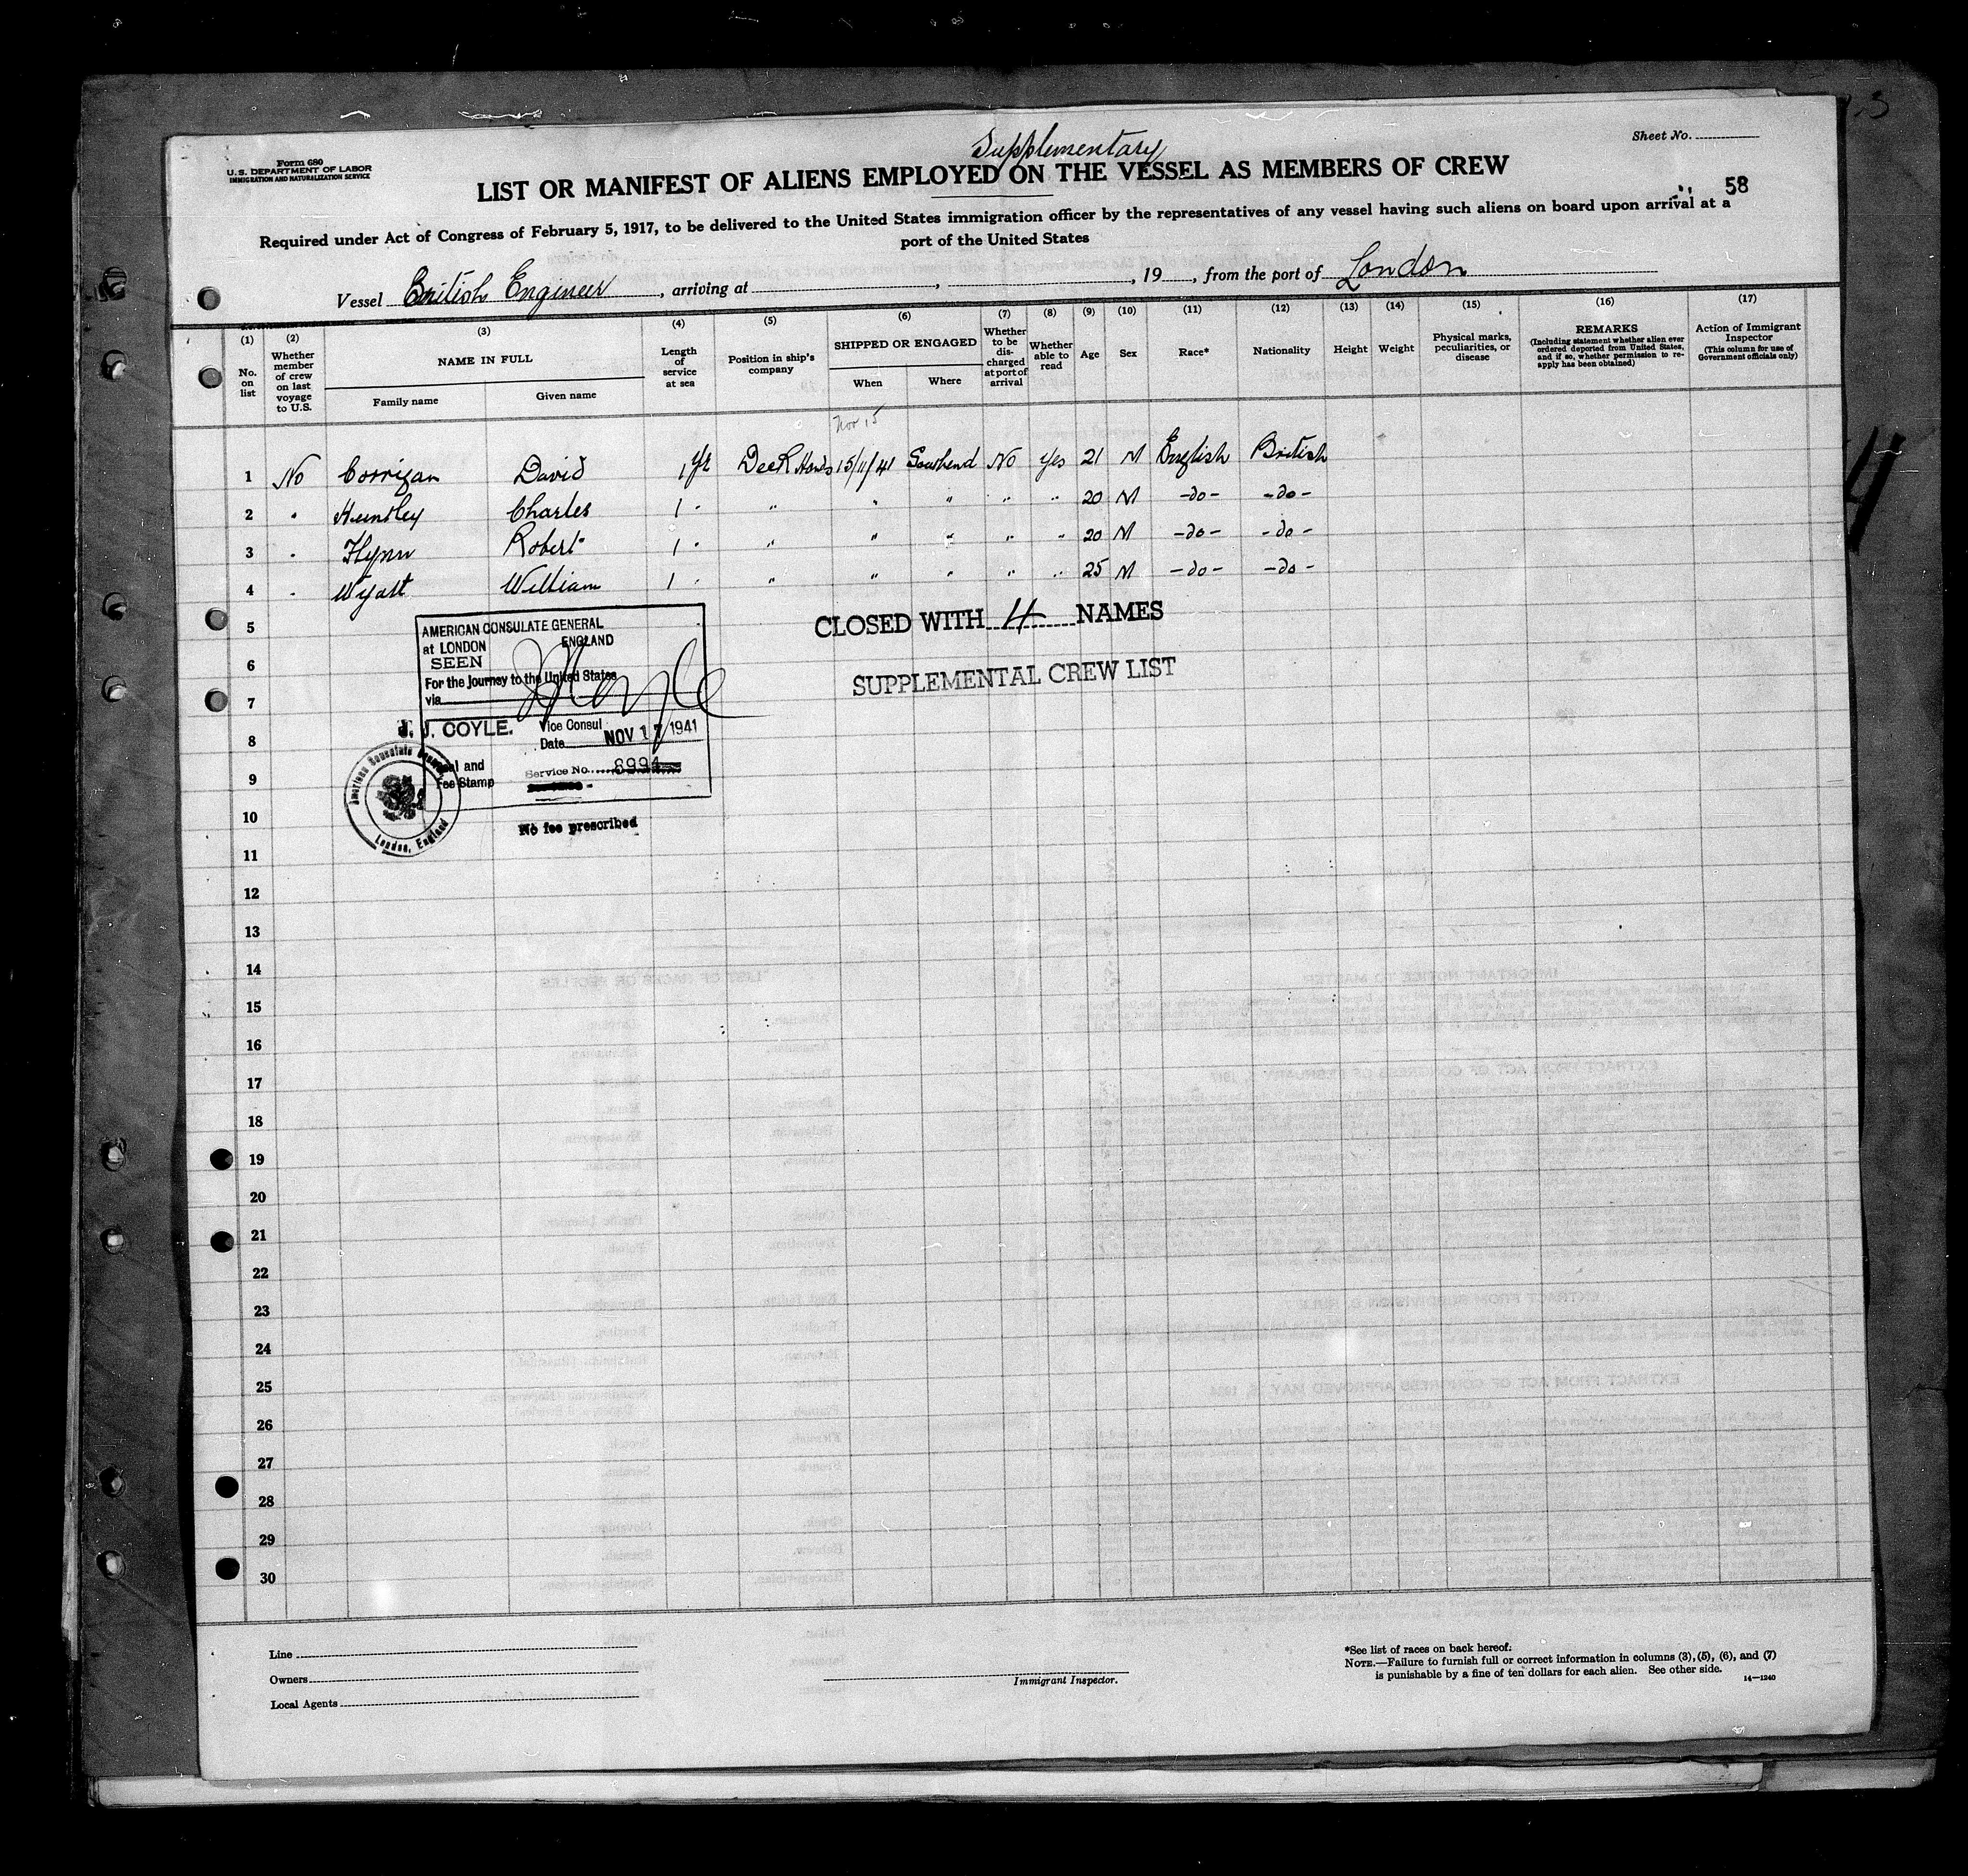 Supplementary
Sheet No.
Form 680
U.S. DEPARTMENT OF LABOR
IMMIGRATION AND NATURALIZATION SERVICE
LIST OR MANIFEST OF ALIENS EMPLOYED ON THE VESSEL AS MEMBERS OF CREW
58
Required under Act of Congress of February 5, 1917, to be delivered to the United States immigration officer by the representatives of any vessel having such aliens on board upon arrival at a
port of the United States
Vessel British Engineer, arriving at , , 19 , from the port of London
(1) No. on list
(2) Whether member of crew on last voyage to U.S.
(3) NAME IN FULL
Family name Given name
(4) Length of service at sea
(5) Position in ship's company
(6) SHIPPED OR ENGAGED
When Where
(7) Whether to be discharged at port of arrival
(8) Whether able to read
(9) Age
(10) Sex
(11) Race*
(12) Nationality
(13) Height
(14) Weight
(15) Physical marks, peculiarities, or disease
(16) REMARKS
(Including statement whether alien ever ordered deported from United States, and if so, whether permission to reapply has been obtained)
(17) Action of Immigrant Inspector
(This column for use of Government officials only)
Nov 15
1 No Corrigan David 1 Yr Deck Hands 15/11/41 Southend No Yes 21 M English British
2 " Huntley Charles 1 " " " " " " 20 M -do- -do-
3 " Flynn Robert 1 " " " " " " 20 M -do- -do-
4 " Wyatt William 1 " " " " " " 25 M -do- -do-
5
6
7
8
9
10
11
12
13
14
15
16
17
18
19
20
21
22
23
24
25
26
27
28
29
30
CLOSED WITH 4 NAMES
SUPPLEMENTAL CREW LIST
AMERICAN CONSULATE GENERAL
at LONDON ENGLAND
SEEN
For the journey to the United States
via
J. J. COYLE. Vice Consul
Date NOV 17 1941
Seal and
Fee Stamp
Service No. 8994
No fee prescribed
American Consulate General
London, England
Line
Owners
Local Agents
Immigrant Inspector.
*See list of races on back hereof.
NOTE.—Failure to furnish full or correct information in columns (3), (5), (6), and (7)
is punishable by a fine of ten dollars for each alien. See other side.
14—1240